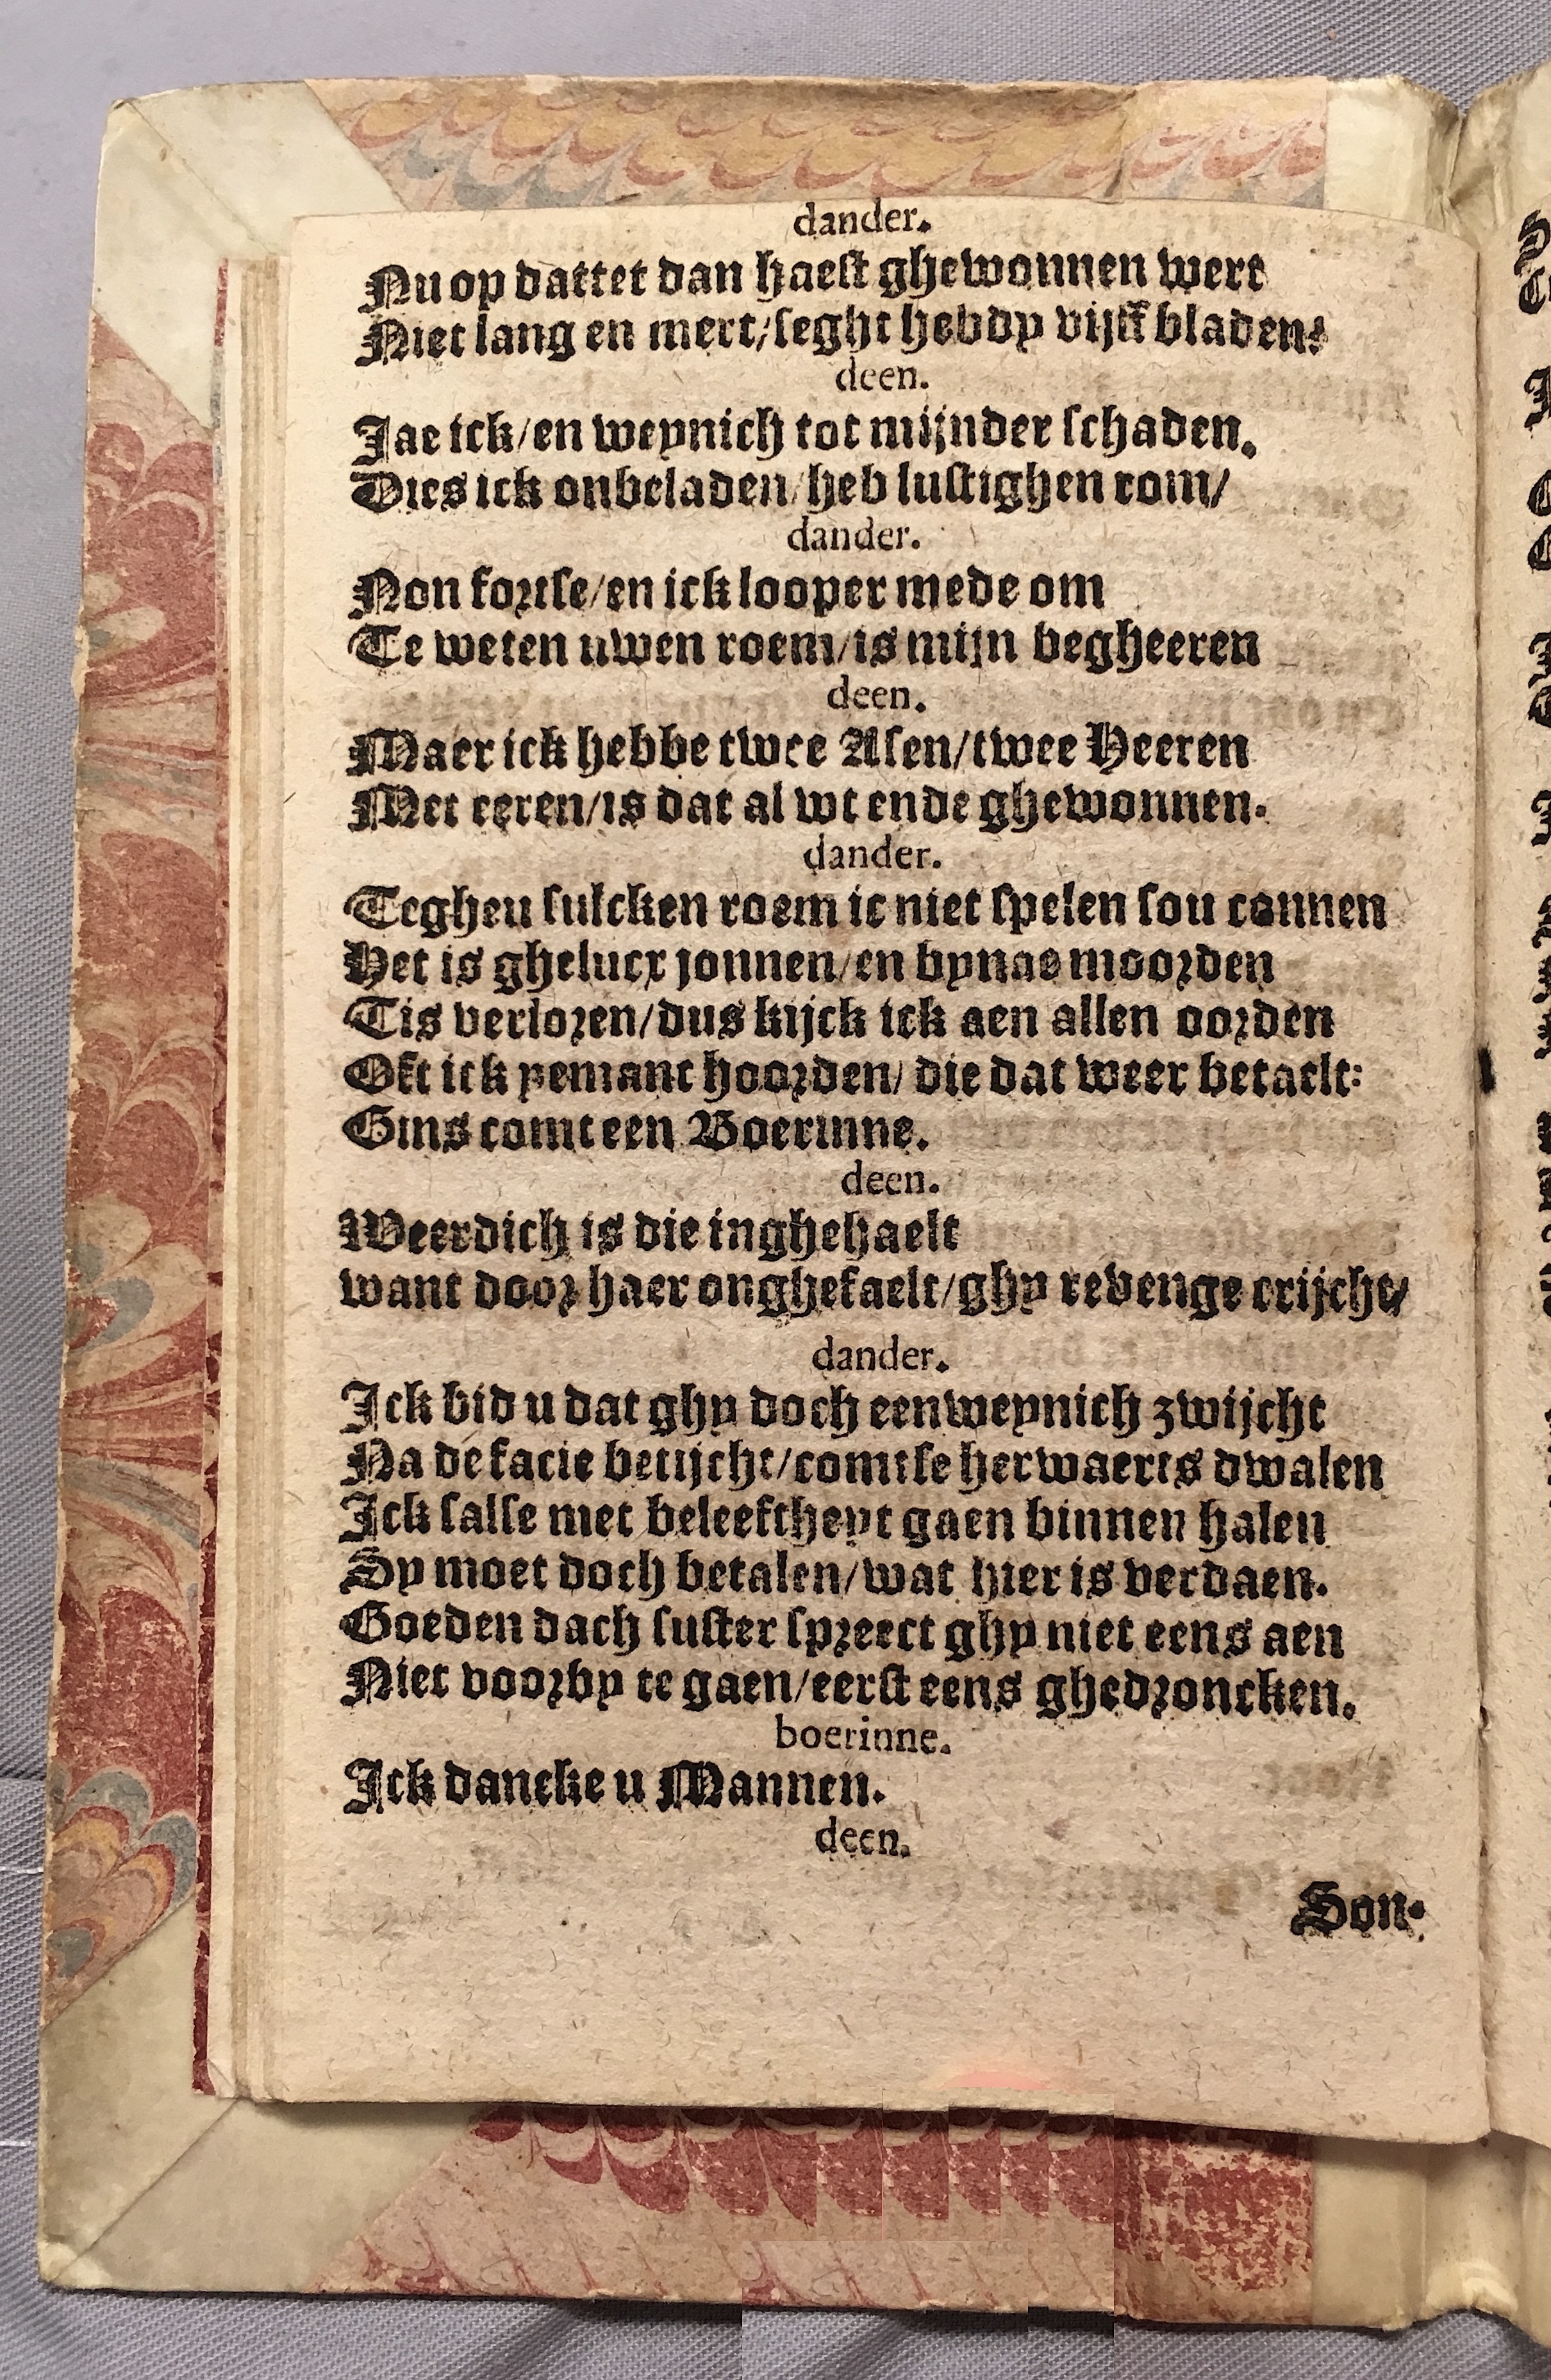 dander.
Nu op dattet dan haest ghewonnen wert
Niet lang en mert/seght hebdy vijff bladen?
deen.
Jae ick/en weynich tot mijnder schaden.
Dies ick onbeladen/heb lustighen rom/
dander.
Non fortse/en ick looper mede om
Te weten uwen roem/is mijn begheeren
deen.
Maer ick hebbe twee Asen/twee Heeren
Met eeren/is dat al wt ende ghewonnen.
dander.
Tegheu sulcken roem ic niet spelen sou connen
Het is ghelucx jonnen/en bynae moorden
Tis verloren/dus kijck ick aen allen oorden
Oft ick yemant hoorden/die dat weer betaelt:
Gins comt een Boerinne.
deen.
Weerdich is die inghehaelt
want door haer onghefaelt/ghy revenge crijcht/
dander.
Ick bid u dat ghy doch eenweynich zwijcht
Na de facie betijcht/comtse herwaerts dwalen
Ick salse met beleeftheyt gaen binnen halen
Sy moet doch betalen/wat hier is verdaen.
Goeden dach suster spreect ghy niet eens aen
Niet voorby te gaen/eerst eens ghedroncken.
boerinne.
Ick dancke u Mannen.
deen.
Son-